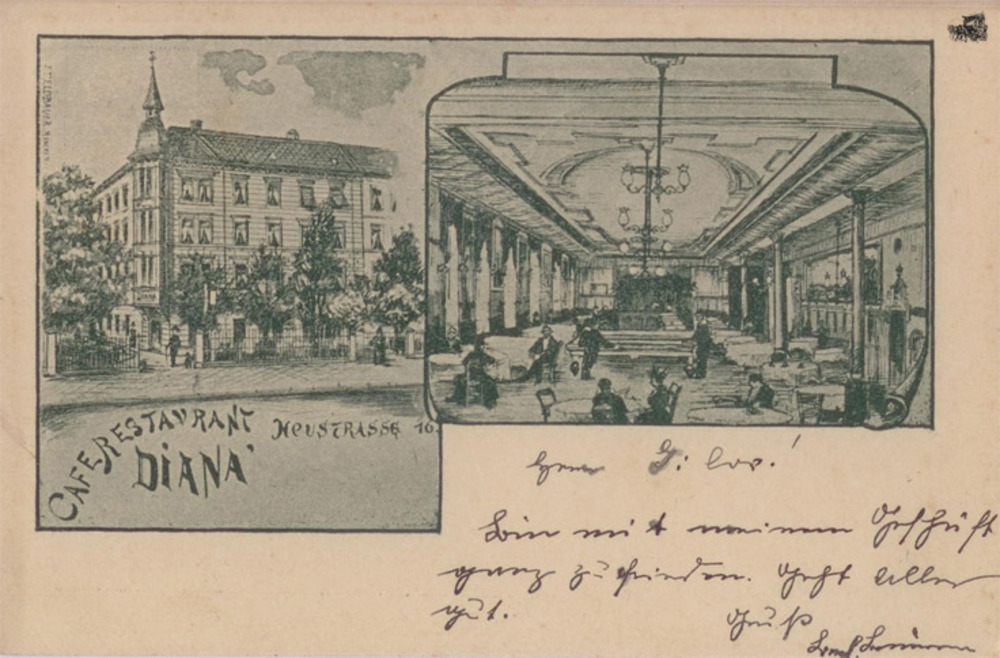 CAFE RESTAVRANT
DIANA
NEUSTRASSE 16.
Herrn
Bin mit meinem Geschäft
ganz zufrieden. Geht Alles
gut.
Gruß